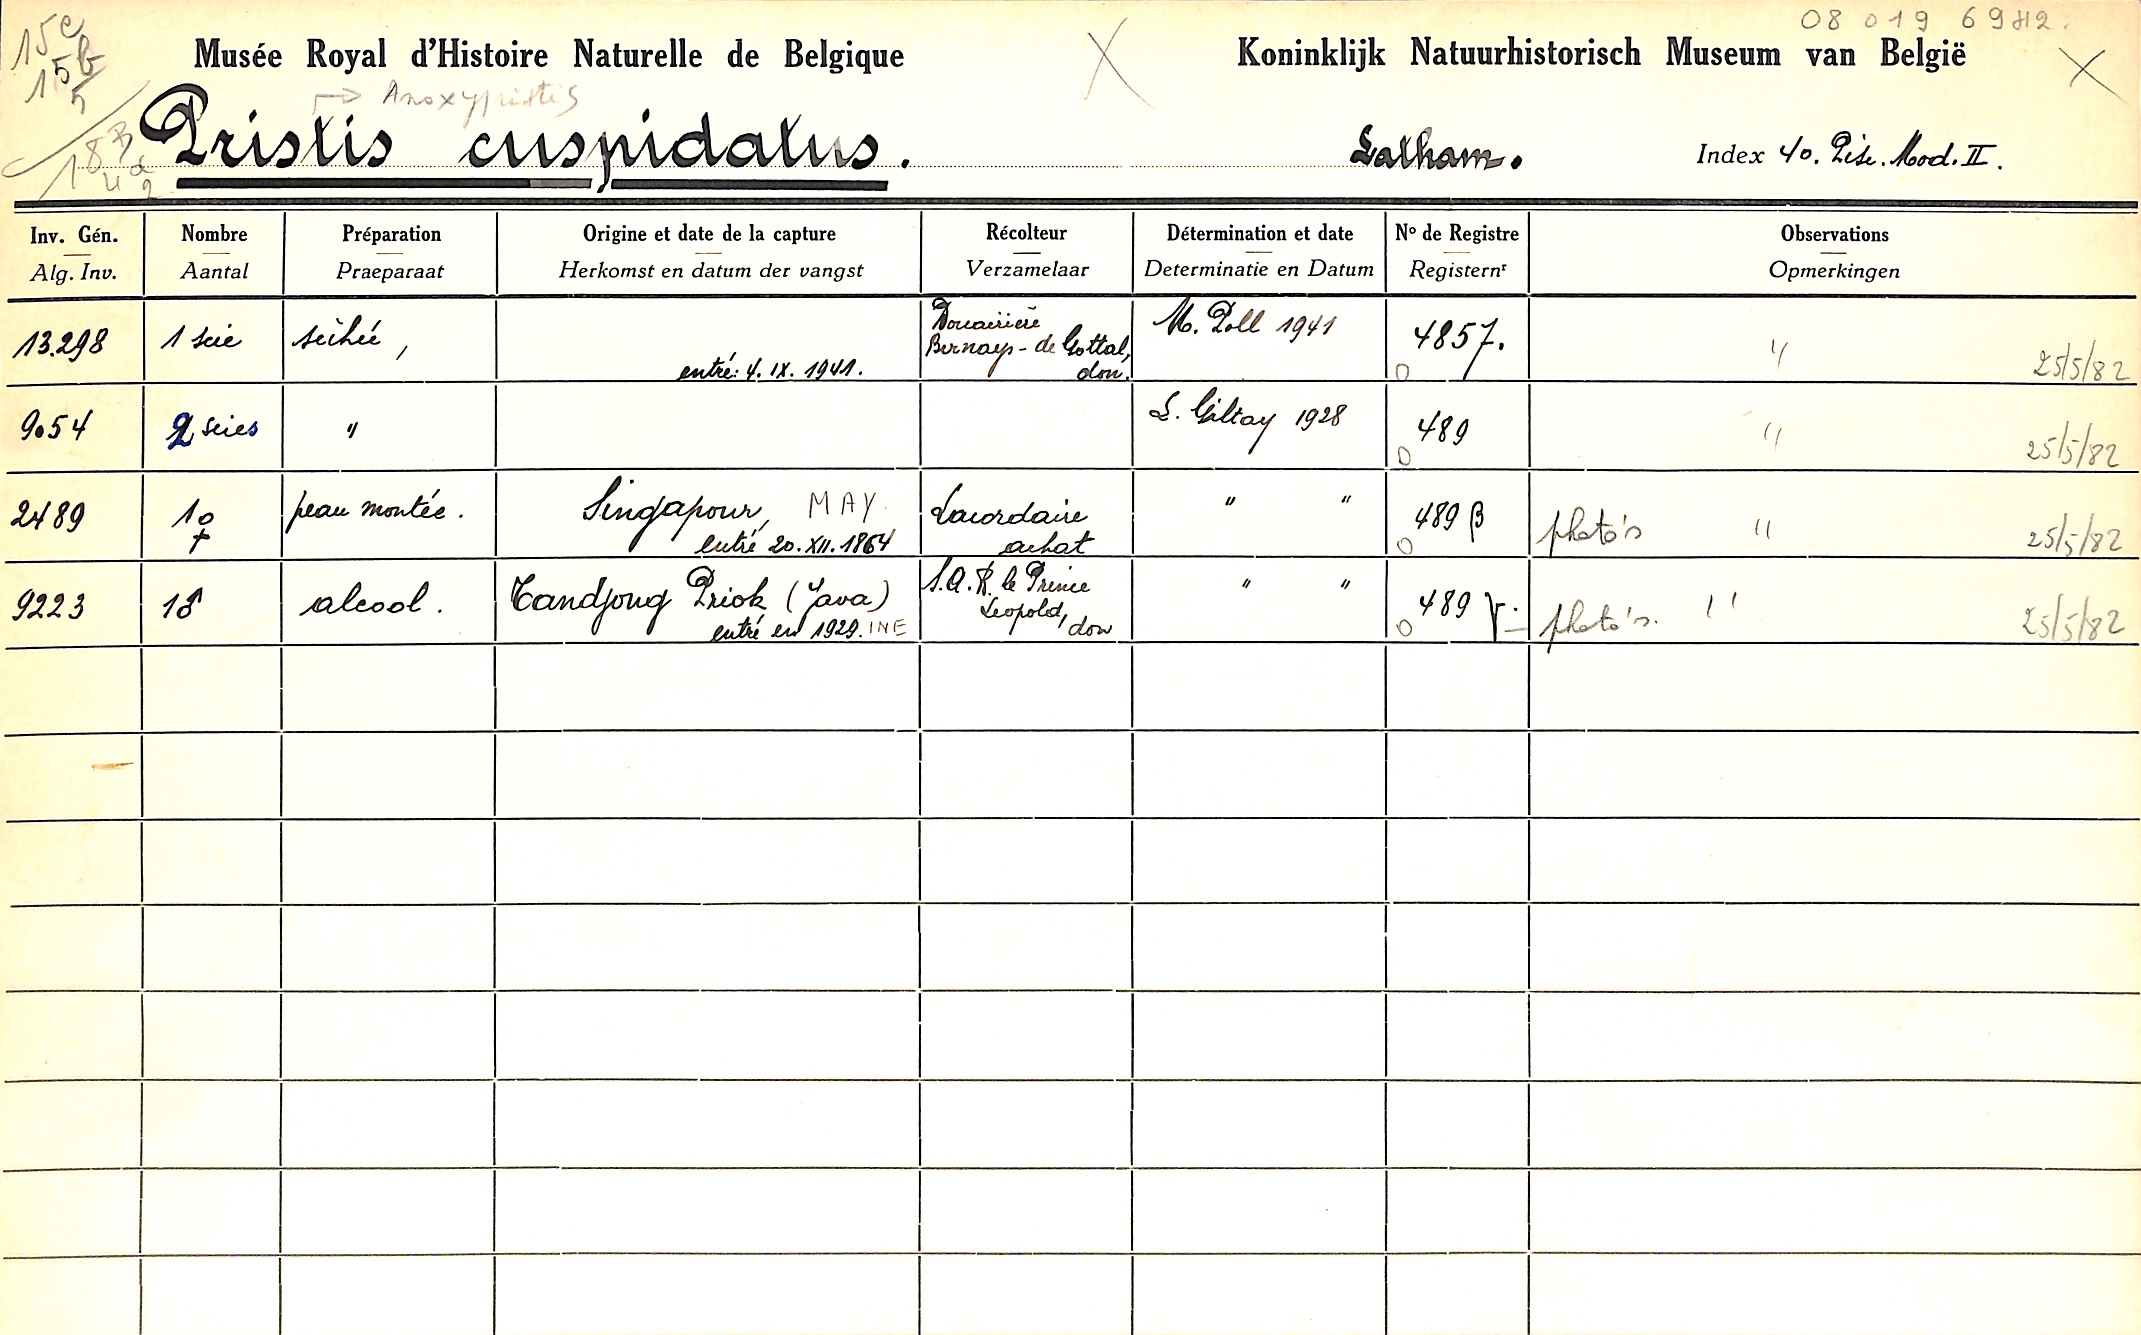 15c
15b
5
08 019 6942.
Musée Royal d'Histoire Naturelle de Belgique
Koninklijk Natuurhistorisch Museum van België
→ Anoxypristis
Pristis cuspidatus.
Latham.
Index 40. Pisc. Mod. II.
18B
Inv. Gén.
Alg. Inv.
Nombre
Aantal
Préparation
Praeparaat
Origine et date de la capture
Herkomst en datum der vangst
Récolteur
Verzamelaar
Détermination et date
Determinatie en Datum
Nº de Registre
Registernʳ
Observations
Opmerkingen
13.298
1 scie
séchée,
entré: 4. IX. 1941.
Douairière
Bernays - de Gottal,
don.
M. Poll 1941
4857.
0
"
25/5/82
9054
2 scies
"
L. Giltay 1928
489
0
"
25/5/82
2489
1♀
peau montée.
Singapour, MAY.
entré 20.XII.1864
Lacordaire
achat
" "
489 β
0
photo's "
25/5/82
9223
1♂
alcool.
Tandjong Priok (Java)
entré en 1929. INE
S.A.R. le Prince
Leopold,
don
" "
489 γ.
0
photo's. "
25/5/82